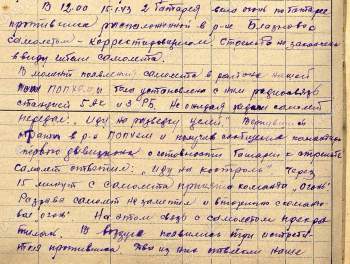 В 12.00 15.1.43 2 Батарея вела огонь по батарее
противника расположенной в р-не Блазново
самолетом-корректировщиком. Стрельба не закончена
ввиду самолета.
В момент появления самолета в районе нашей
была установлена с ним радиосвязь
станцией 5-АК и 3 РБ. Не ожидая самолет
передал: "Иду на разведку цели". Вернувшись
в р-н и получив сообщение
первого дивизиона о готовности батареи к открытию
самолет ответил: "Иду на контроль". Через
15 минут с самолета принята команда "Огонь".
Разрыва самолет не заметил и вторично скомандо-
вал "огонь". На этом связь с самолетом прекра-
тилась. В воздухе появились три истреби-
теля противника. Два из них